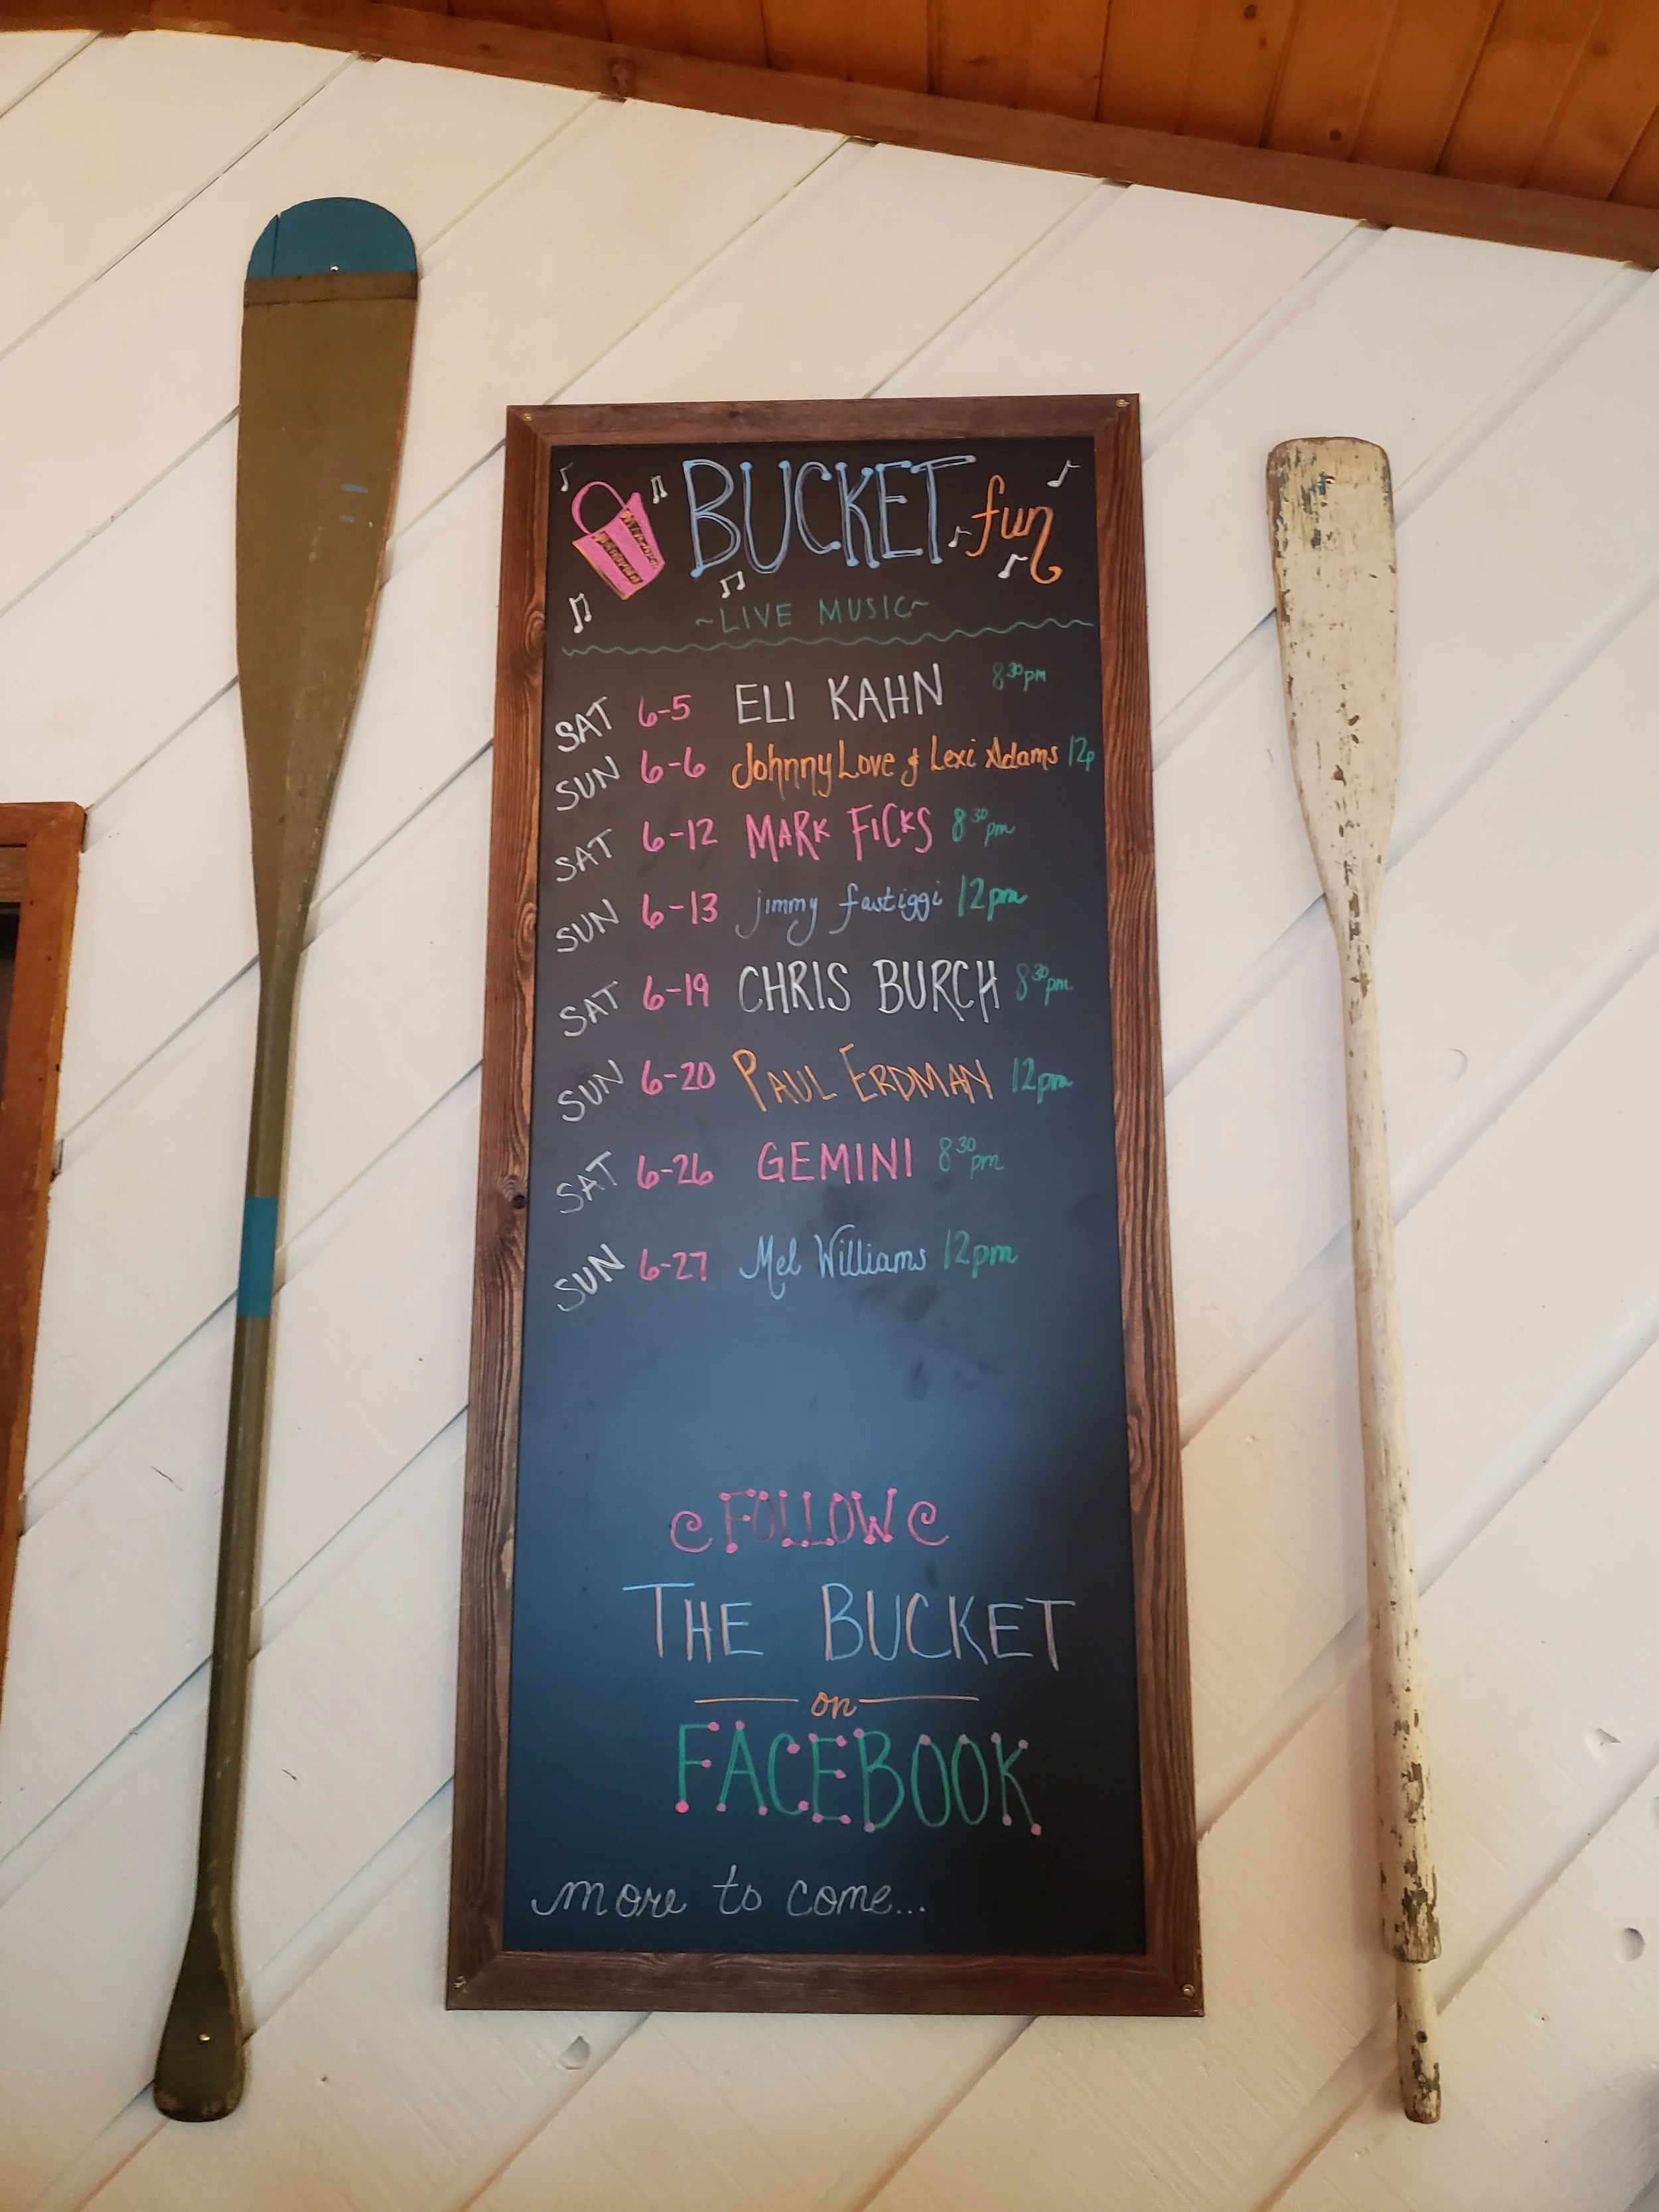 BUCKET fun
~LIVE MUSIC~
SAT 6-5 ELI KAHN 8 30 pm
SUN 6-6 Johnny Love & Lexi Adams 12p
SAT 6-12 MARK FICKS 8 30 pm
SUN 6-13 jimmy fastiggi 12pm
SAT 6-19 CHRIS BURCH 8 30 pm
SUN 6-20 PAUL ERDMAN 12pm
SAT 6-26 GEMINI 8 30 pm
SUN 6-27 Mel Williams 12pm
FOLLOW
THE BUCKET
on
FACEBOOK
more to come...